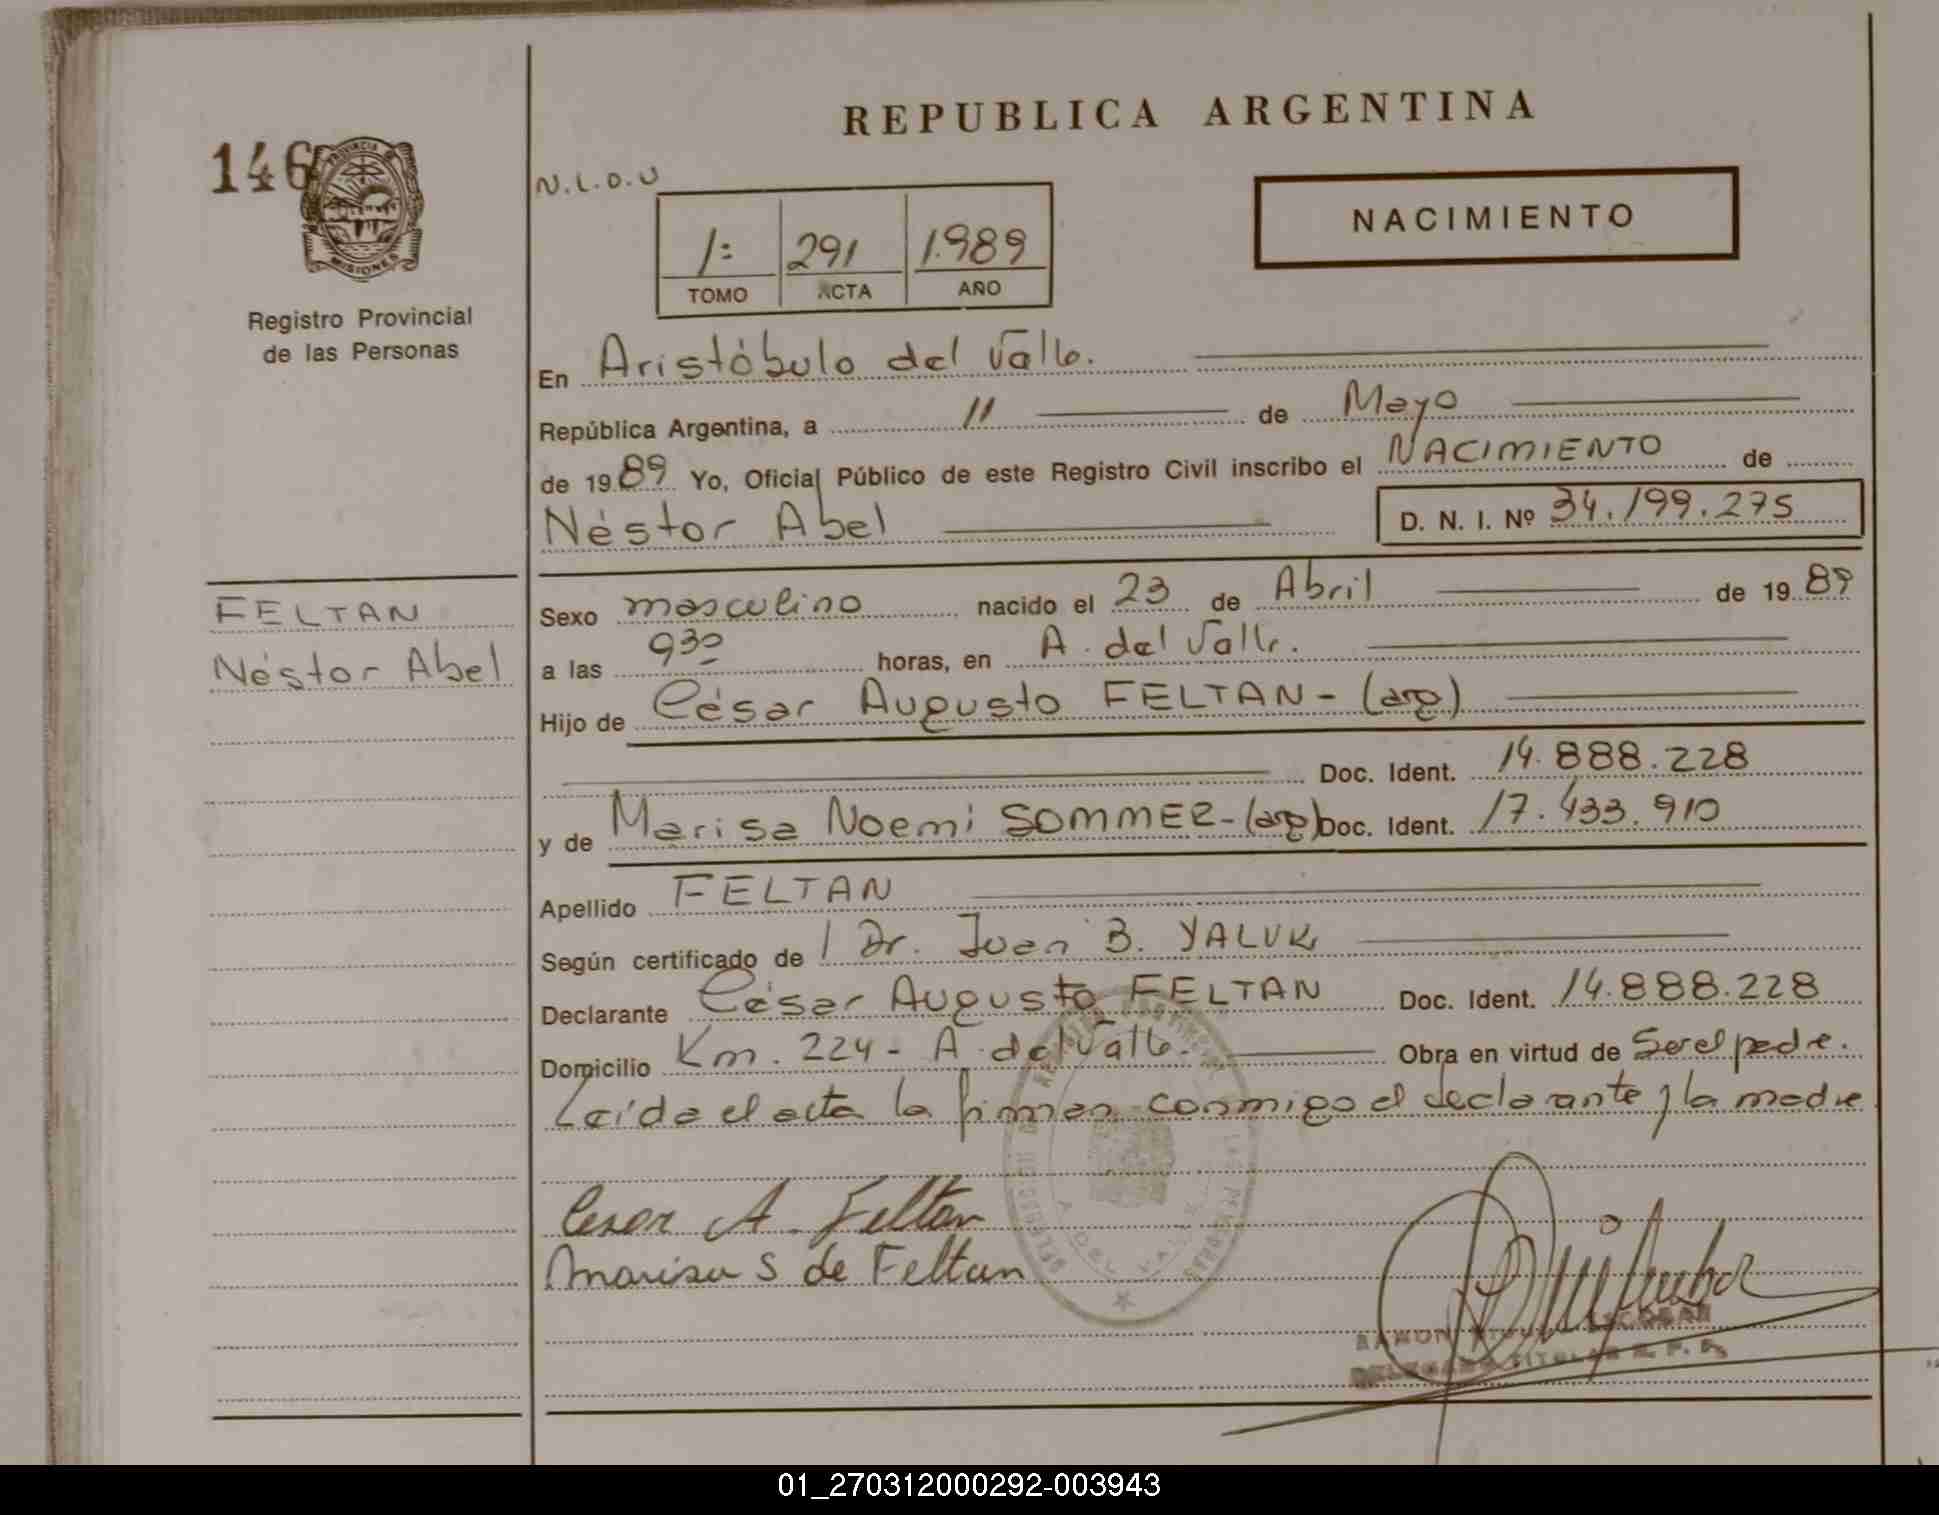 REPUBLICA ARGENTINA
146
PROVINCIA DE
MISIONES
Registro Provincial
de las Personas
N.L.O.U
1= 291 1.989
TOMO ACTA AÑO
NACIMIENTO
En Aristóbulo del Valle.
República Argentina, a 11 de Mayo
de 1989 Yo, Oficial Público de este Registro Civil inscribo el NACIMIENTO de
Néstor Abel D. N. I. Nº 34.199.275
FELTAN
Néstor Abel
Sexo masculino nacido el 23 de Abril de 1989
a las 930 horas, en A. del Valle.
Hijo de César Augusto FELTAN - (arg)
Doc. Ident. 14.888.228
y de Marisa Noemi SOMMER - (arg) Doc. Ident. 17.433.910
Apellido FELTAN
Según certificado de Dr. Juan B. YALUK
Declarante César Augusto FELTAN Doc. Ident. 14.888.228
Domicilio Km. 224 - A. del Valle. Obra en virtud de Ser el padre.
Leída el acta la firman conmigo el declarante y la madre
Cesar A. Feltan
Marisa S de Feltan
RAMON ESCOBAR
DELEGADO TITULAR R. P. P.
01_270312000292-003943